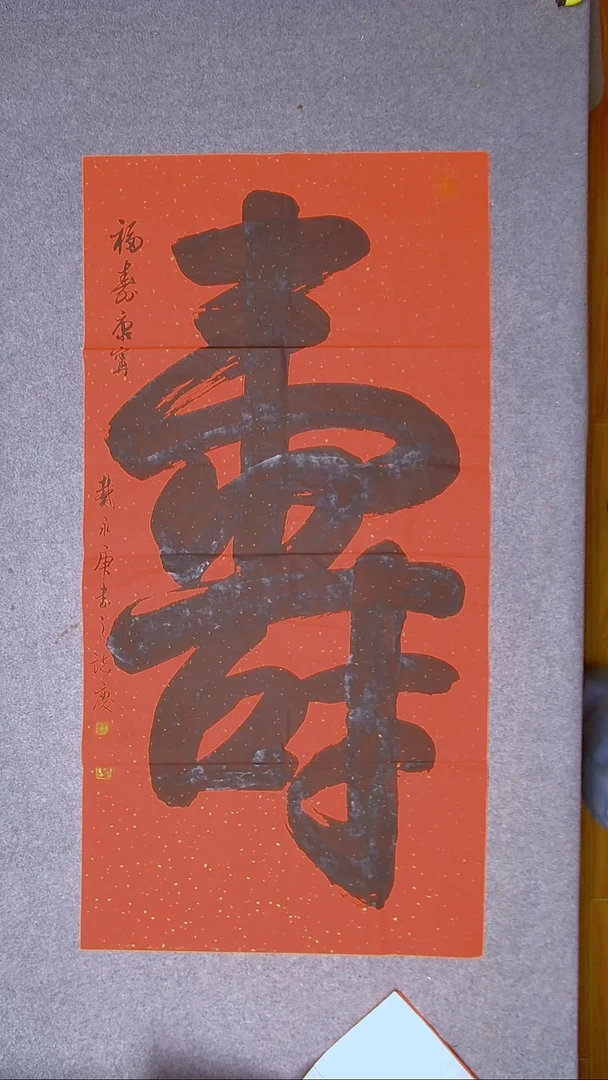 壽
福壽康寧
戴永康書之誌慶